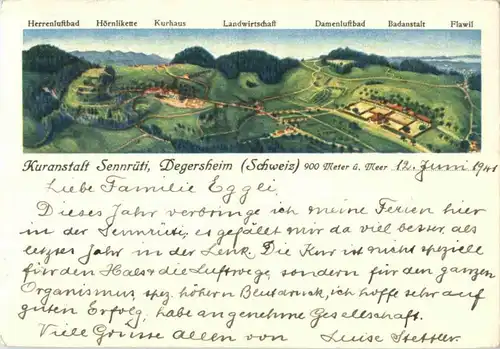 Herrenluftbad Hörnlikette Kurhaus Landwirtschaft Damenluftbad Badanstalt Flawil
Kuranstalt Sennrüti, Degersheim (Schweiz) 900 Meter ü. Meer 12. Juni 1941
Liebe Familie Eggli,
Dieses Jahr verbringe ich meine Ferien hier
in der Sennrüti, es gefällt mir da viel besser, als
letztes Jahr in der Lenk. Die Kur ist nicht speziell
für den Hals & die Luftwege, sondern für den ganzen
Organismus, spez. höhern Blutdruck, ich hoffe sehr auf
guten Erfolg, habe angenehme Gesellschaft.
Viele Grüsse allen von Luise Stettler.